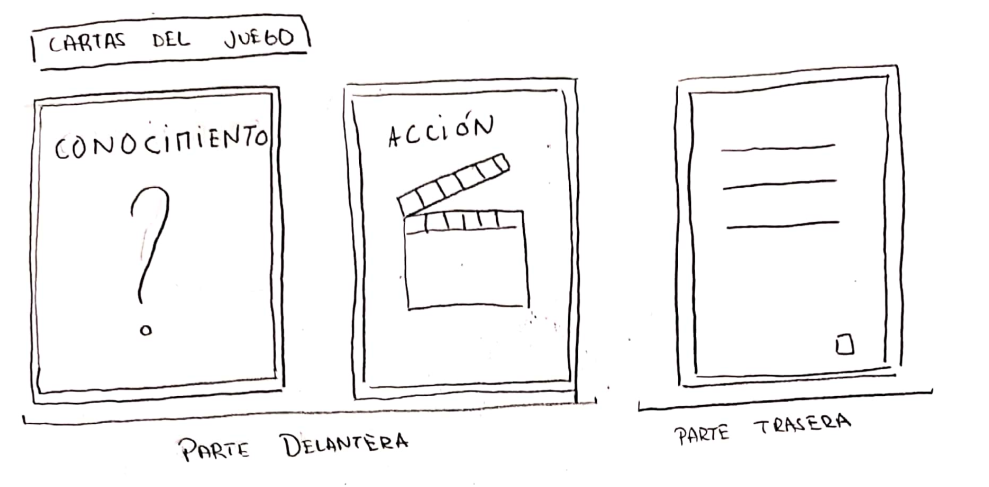 CARTAS DEL JUEGO
CONOCIMIENTO
?
ACCIÓN
PARTE DELANTERA
PARTE TRASERA